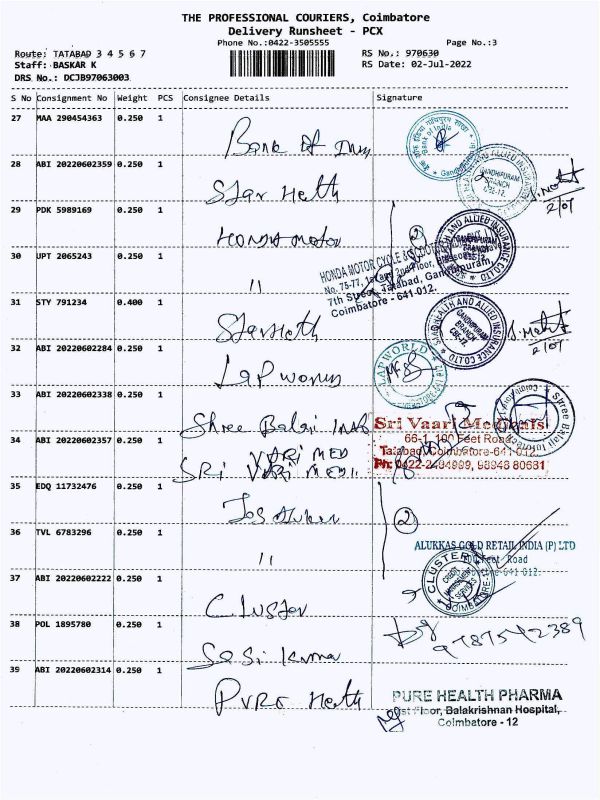 THE PROFESSIONAL COURIERS, Coimbatore
Delivery Runsheet - PCX
Phone No.:0422-3505555 Page No.:3
Route: TATABAD 3 4 5 6 7 RS No.: 970630
Staff: BASKAR K RS Date: 02-Jul-2022
DRS No.: DCJB97063003
S No Consignment No Weight PCS Consignee Details Signature
27 MAA 290454363 0.250 1
Bank of
Bank of India
28 ABI 20220602359 0.250 1
Star Helth
GANDHIPURAM BRANCH CBE-12.
2/07
29 PDK 5989169 0.250 1
HONDA MOTOR
2
STAR HEALTH AND ALLIED INSURANCE CO LTD
GANDHIPURAM BRANCH CBE-12.
30 UPT 2065243 0.250 1
"
HONDA MOTOR CYCLE &
No. 75-77, 1st and 2nd Floor,
7th Street, Tatabad, Gandhipuram,
Coimbatore - 641 012.
31 STY 791234 0.400 1
Star Helth
STAR HEALTH AND ALLIED INSURANCE CO LTD
GANDHIPURAM BRANCH CBE-12.
2/07
32 ABI 20220602284 0.250 1
Lap world
LAPWORLD
33 ABI 20220602338 0.250 1
Shree Balaji
Shree Balaji
Sri Vaari Medicals
66-1, 100 Feet Road
Tatabad, Coimbatore-641 012
Ph: 0422-2494999, 98948 80681
34 ABI 20220602357 0.250 1
VARI MED
SRI VARI MEDI
35 EDQ 11732476 0.250 1
2
36 TVL 6783296 0.250 1
"
ALUKKAS GOLD RETAIL INDIA (P) LTD
Feet Road
641 012.
37 ABI 20220602222 0.250 1
Cluster
CLUSTER
COIMBATORE
38 POL 1895780 0.250 1
Sasi Kumar
9787542389
39 ABI 20220602314 0.250 1
Pure Helth
PURE HEALTH PHARMA
1st Floor, Balakrishnan Hospital,
Coimbatore - 12